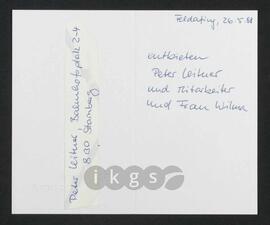 Feldafing, 26.5.88
entbieten
Peter Leitner
und Mitarbeiter
und Frau Wilma
Peter Leitner, Bahnhofplatz 2-4
8130 Starnberg
ikgs